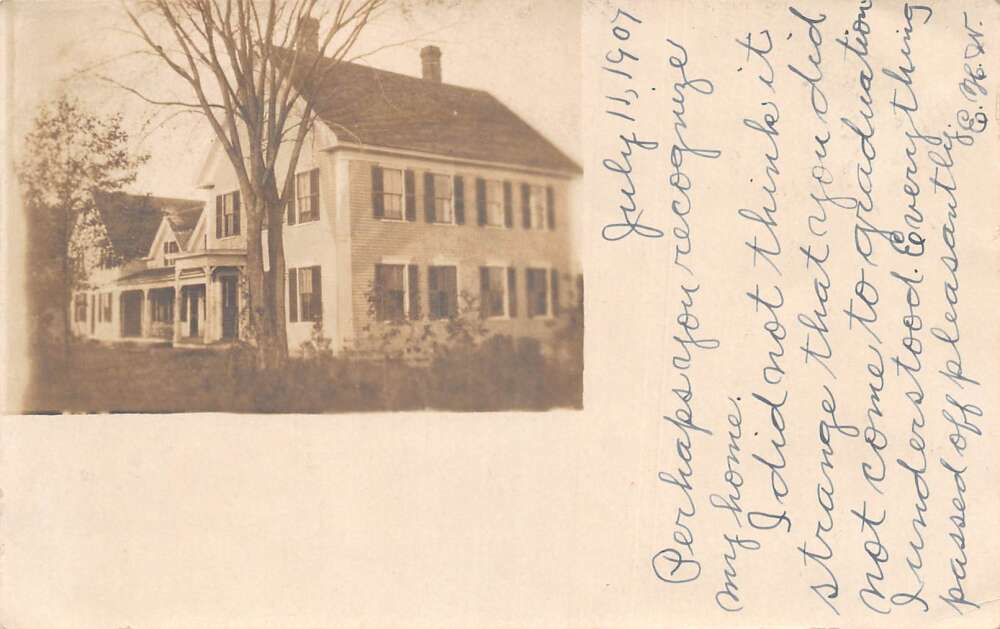 July 11, 1907
Perhaps you recognize
my home.
I did not think it
strange that you did
not come to graduation
I understood. Every thing
passed off pleasantly.
E. H. W.